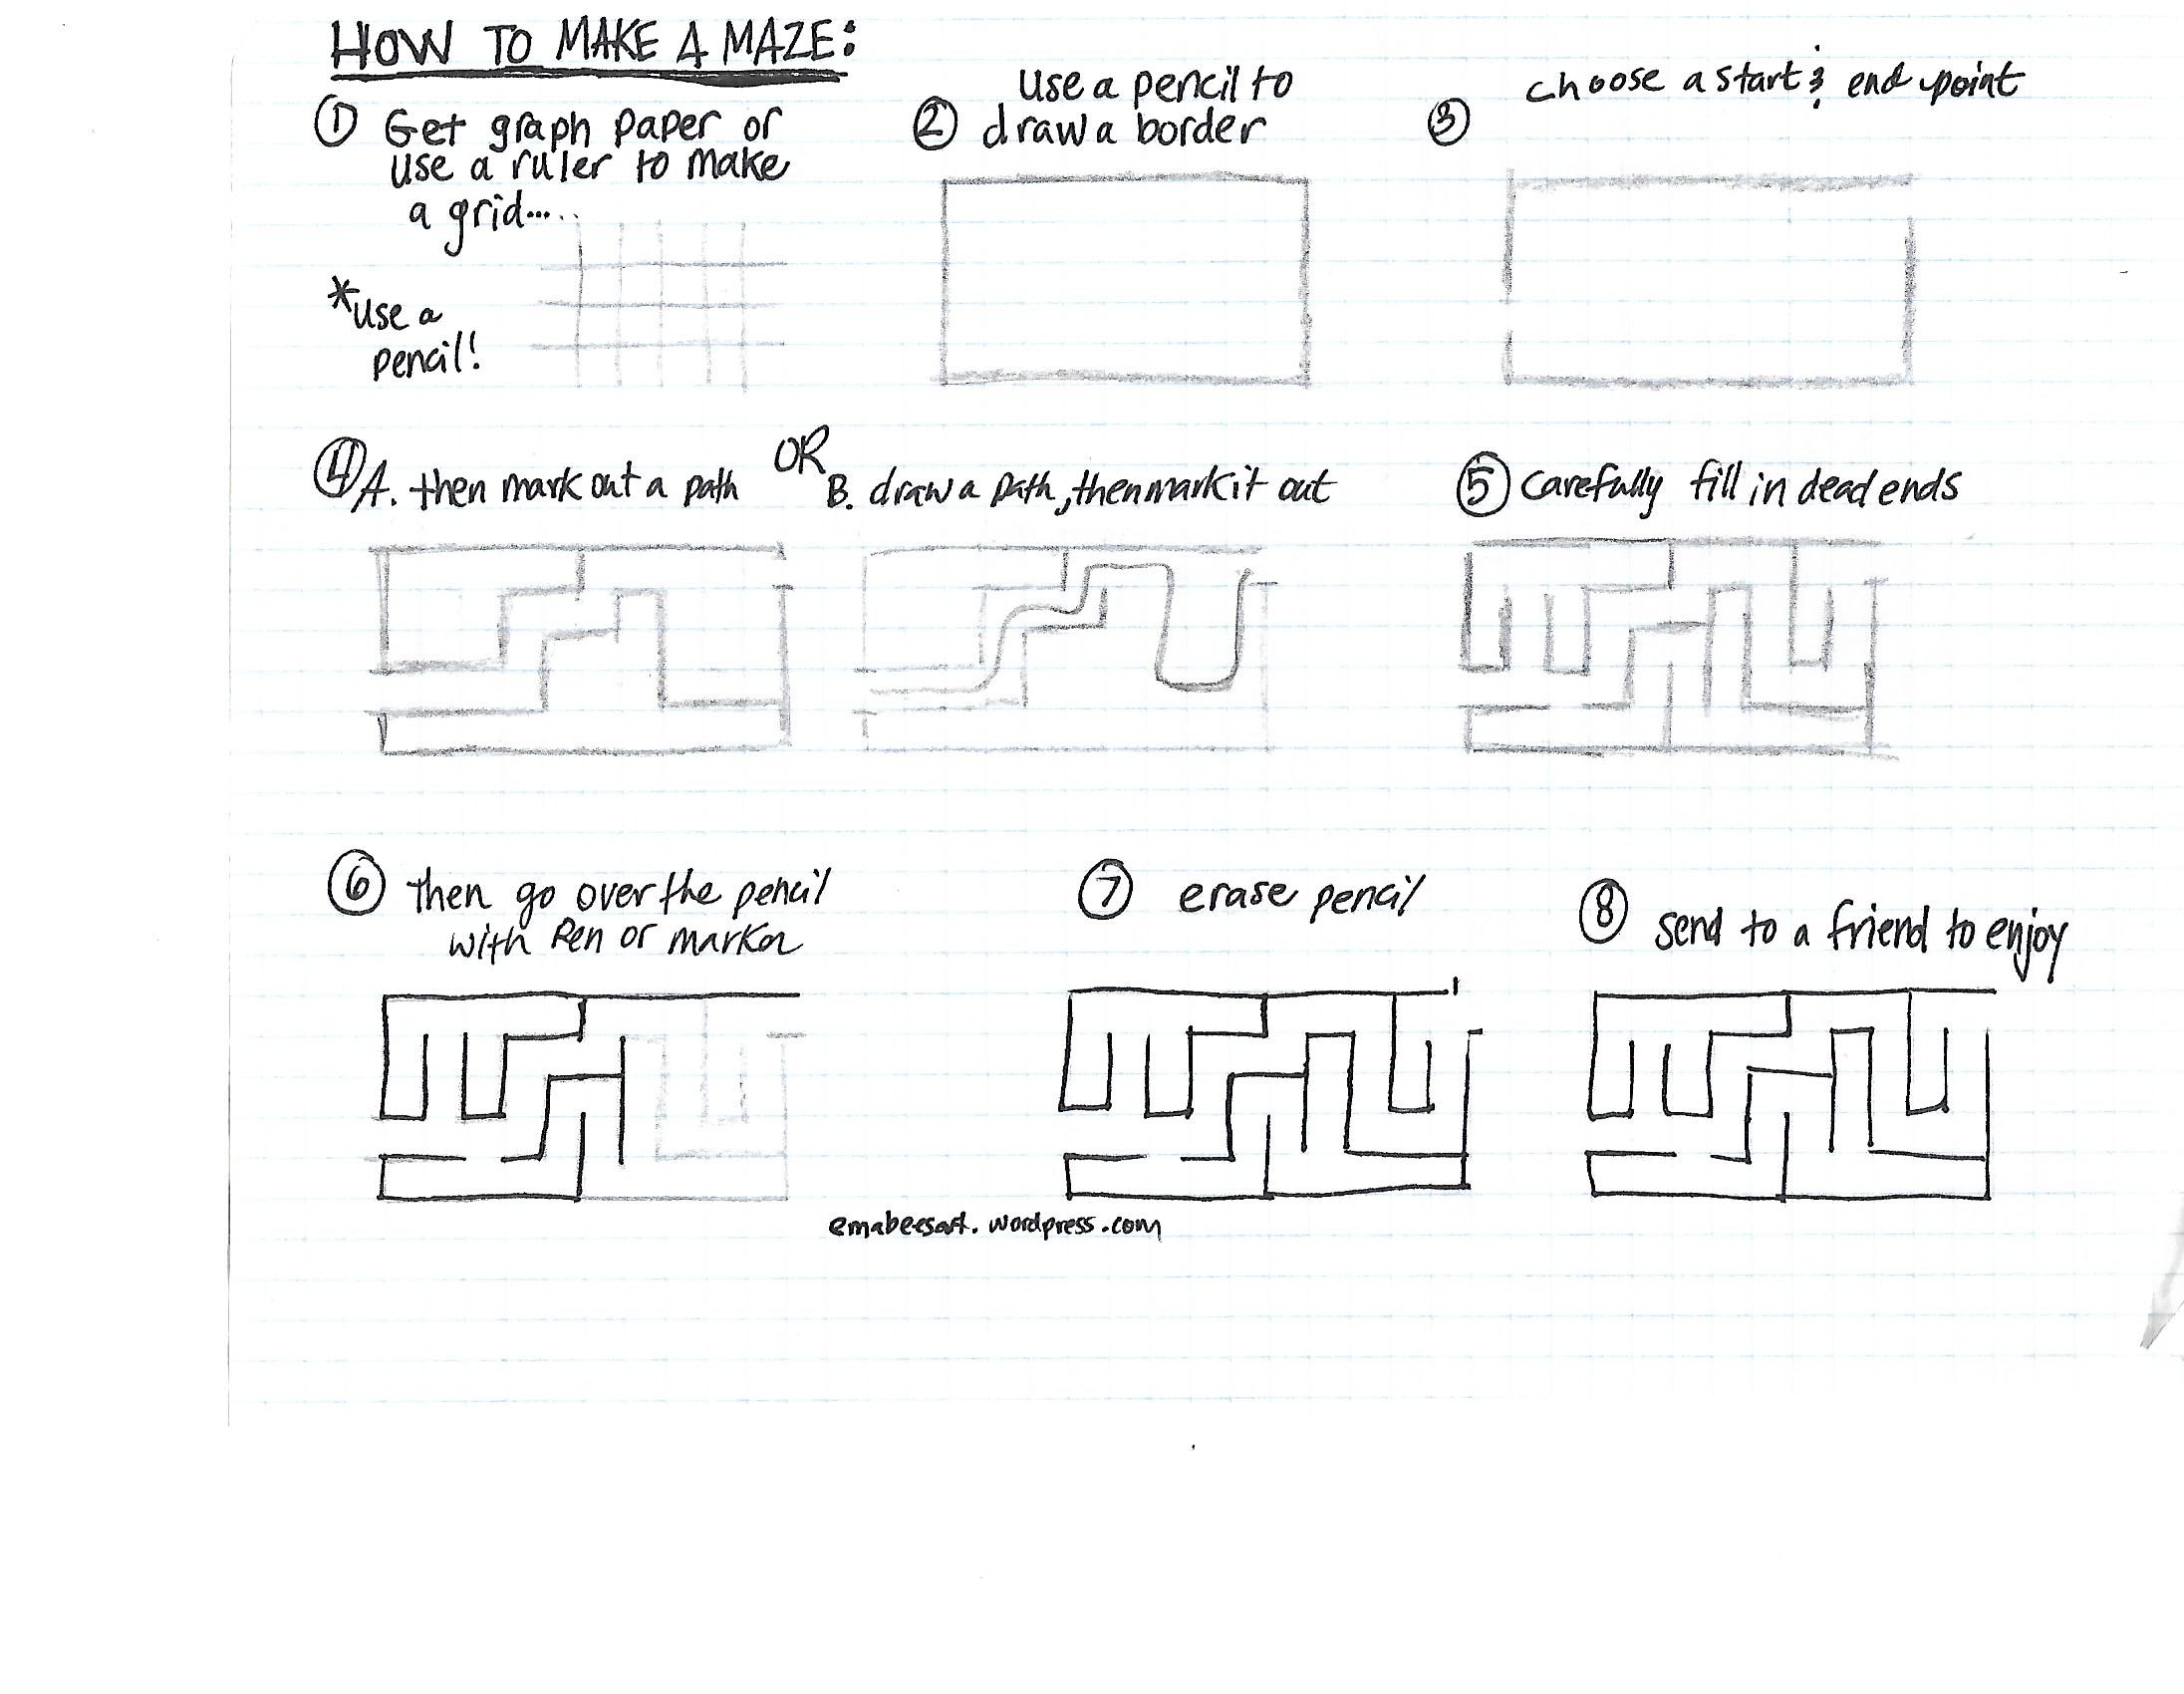 HOW TO MAKE A MAZE:
① Get graph paper or
use a ruler to make
a grid.....
*use a
pencil!
② use a pencil to
draw a border
③ choose a start & end point
④ A. then mark out a path
OR
B. draw a path, then mark it out
⑤ carefully fill in dead ends
⑥ then go over the pencil
with pen or marker
⑦ erase pencil
⑧ send to a friend to enjoy
emabeesart.wordpress.com